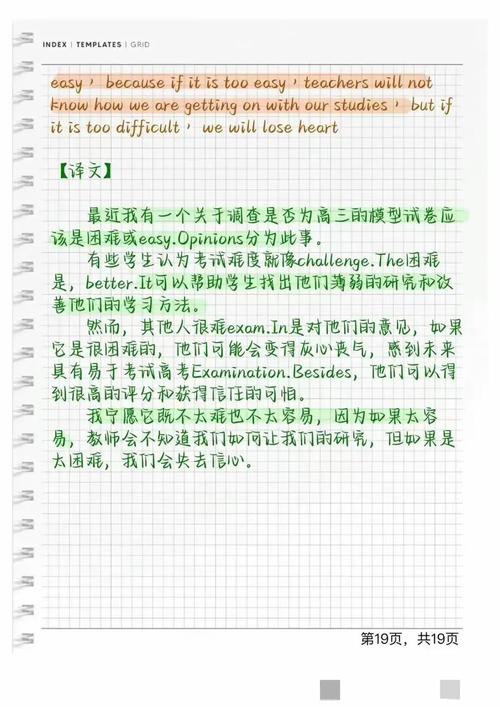 INDEX | TEMPLATES | GRID
easy， because if it is too easy，teachers will not
know how we are getting on with our studies， but if
it is too difficult， we will lose heart
【译文】
最近我有一个关于调查是否为高三的模型试卷应
该是困难或easy.Opinions分为此事。
有些学生认为考试难度就像challenge.The困难
是，better.It可以帮助学生找出他们薄弱的研究和改
善他们的学习方法。
然而，其他人很难exam.In是对他们的意见，如果
它是很困难的，他们可能会变得灰心丧气，感到未来
具有易于考试高考Examination.Besides，他们可以得
到很高的评分和获得信任的可怕。
我宁愿它既不太难也不太容易，因为如果太容
易，教师会不知道我们如何让我们的研究，但如果是
太困难，我们会失去信心。
第19页，共19页